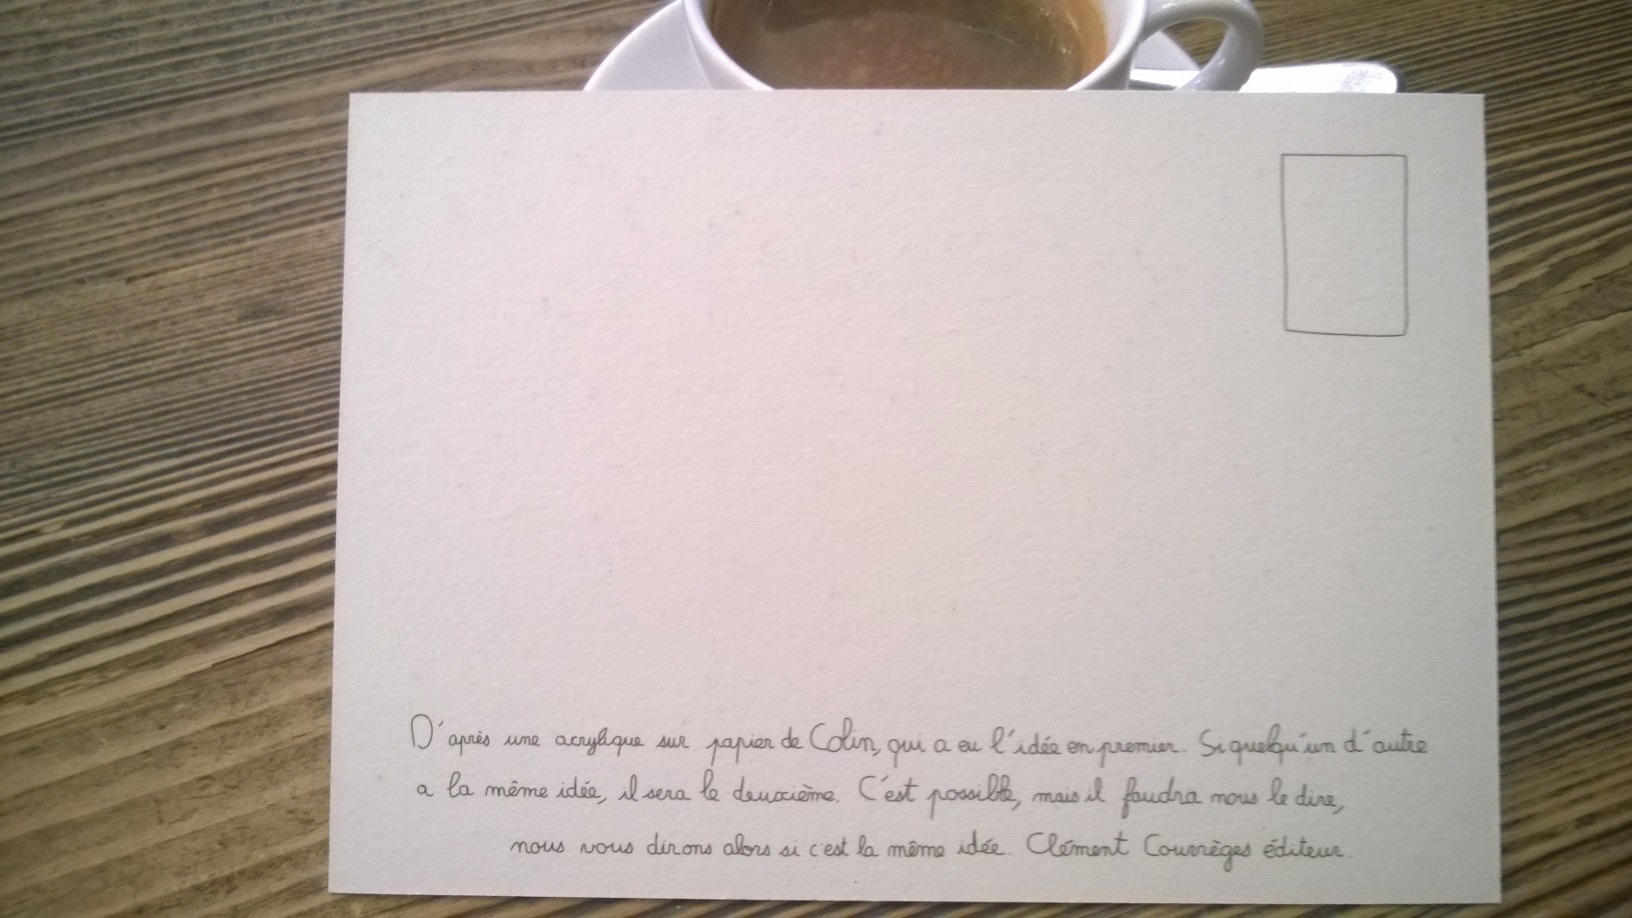 D'après une acrylique sur papier de Colin, qui a eu l'idée en premier. Si quelqu'un d'autre
a la même idée, il sera le deuxième. C'est possible, mais il faudra nous le dire,
nous vous dirons alors si c'est la même idée. Clément Courrèges éditeur.